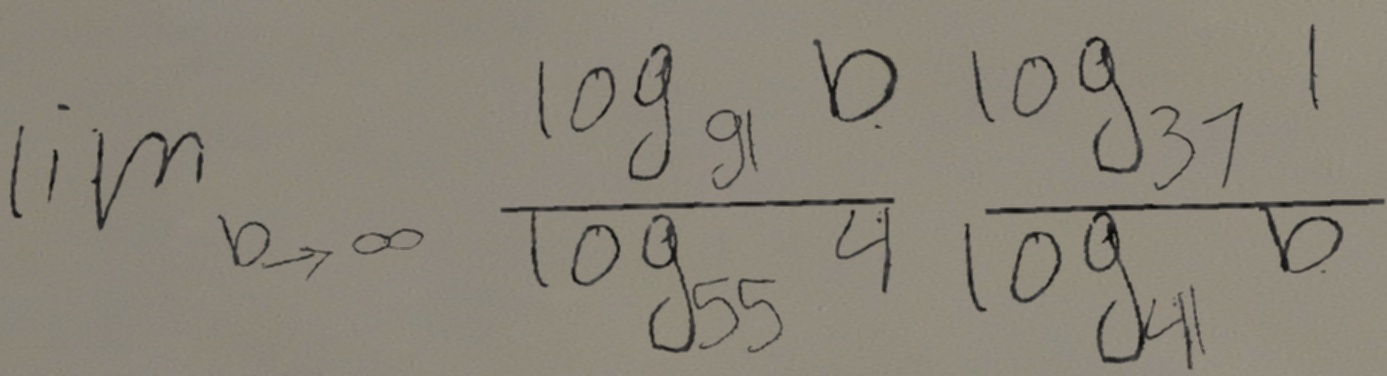 \lim_{b \to \infty} \frac{\log_{91} b}{\log_{55} 4} \frac{\log_{37} 1}{\log_{41} b}